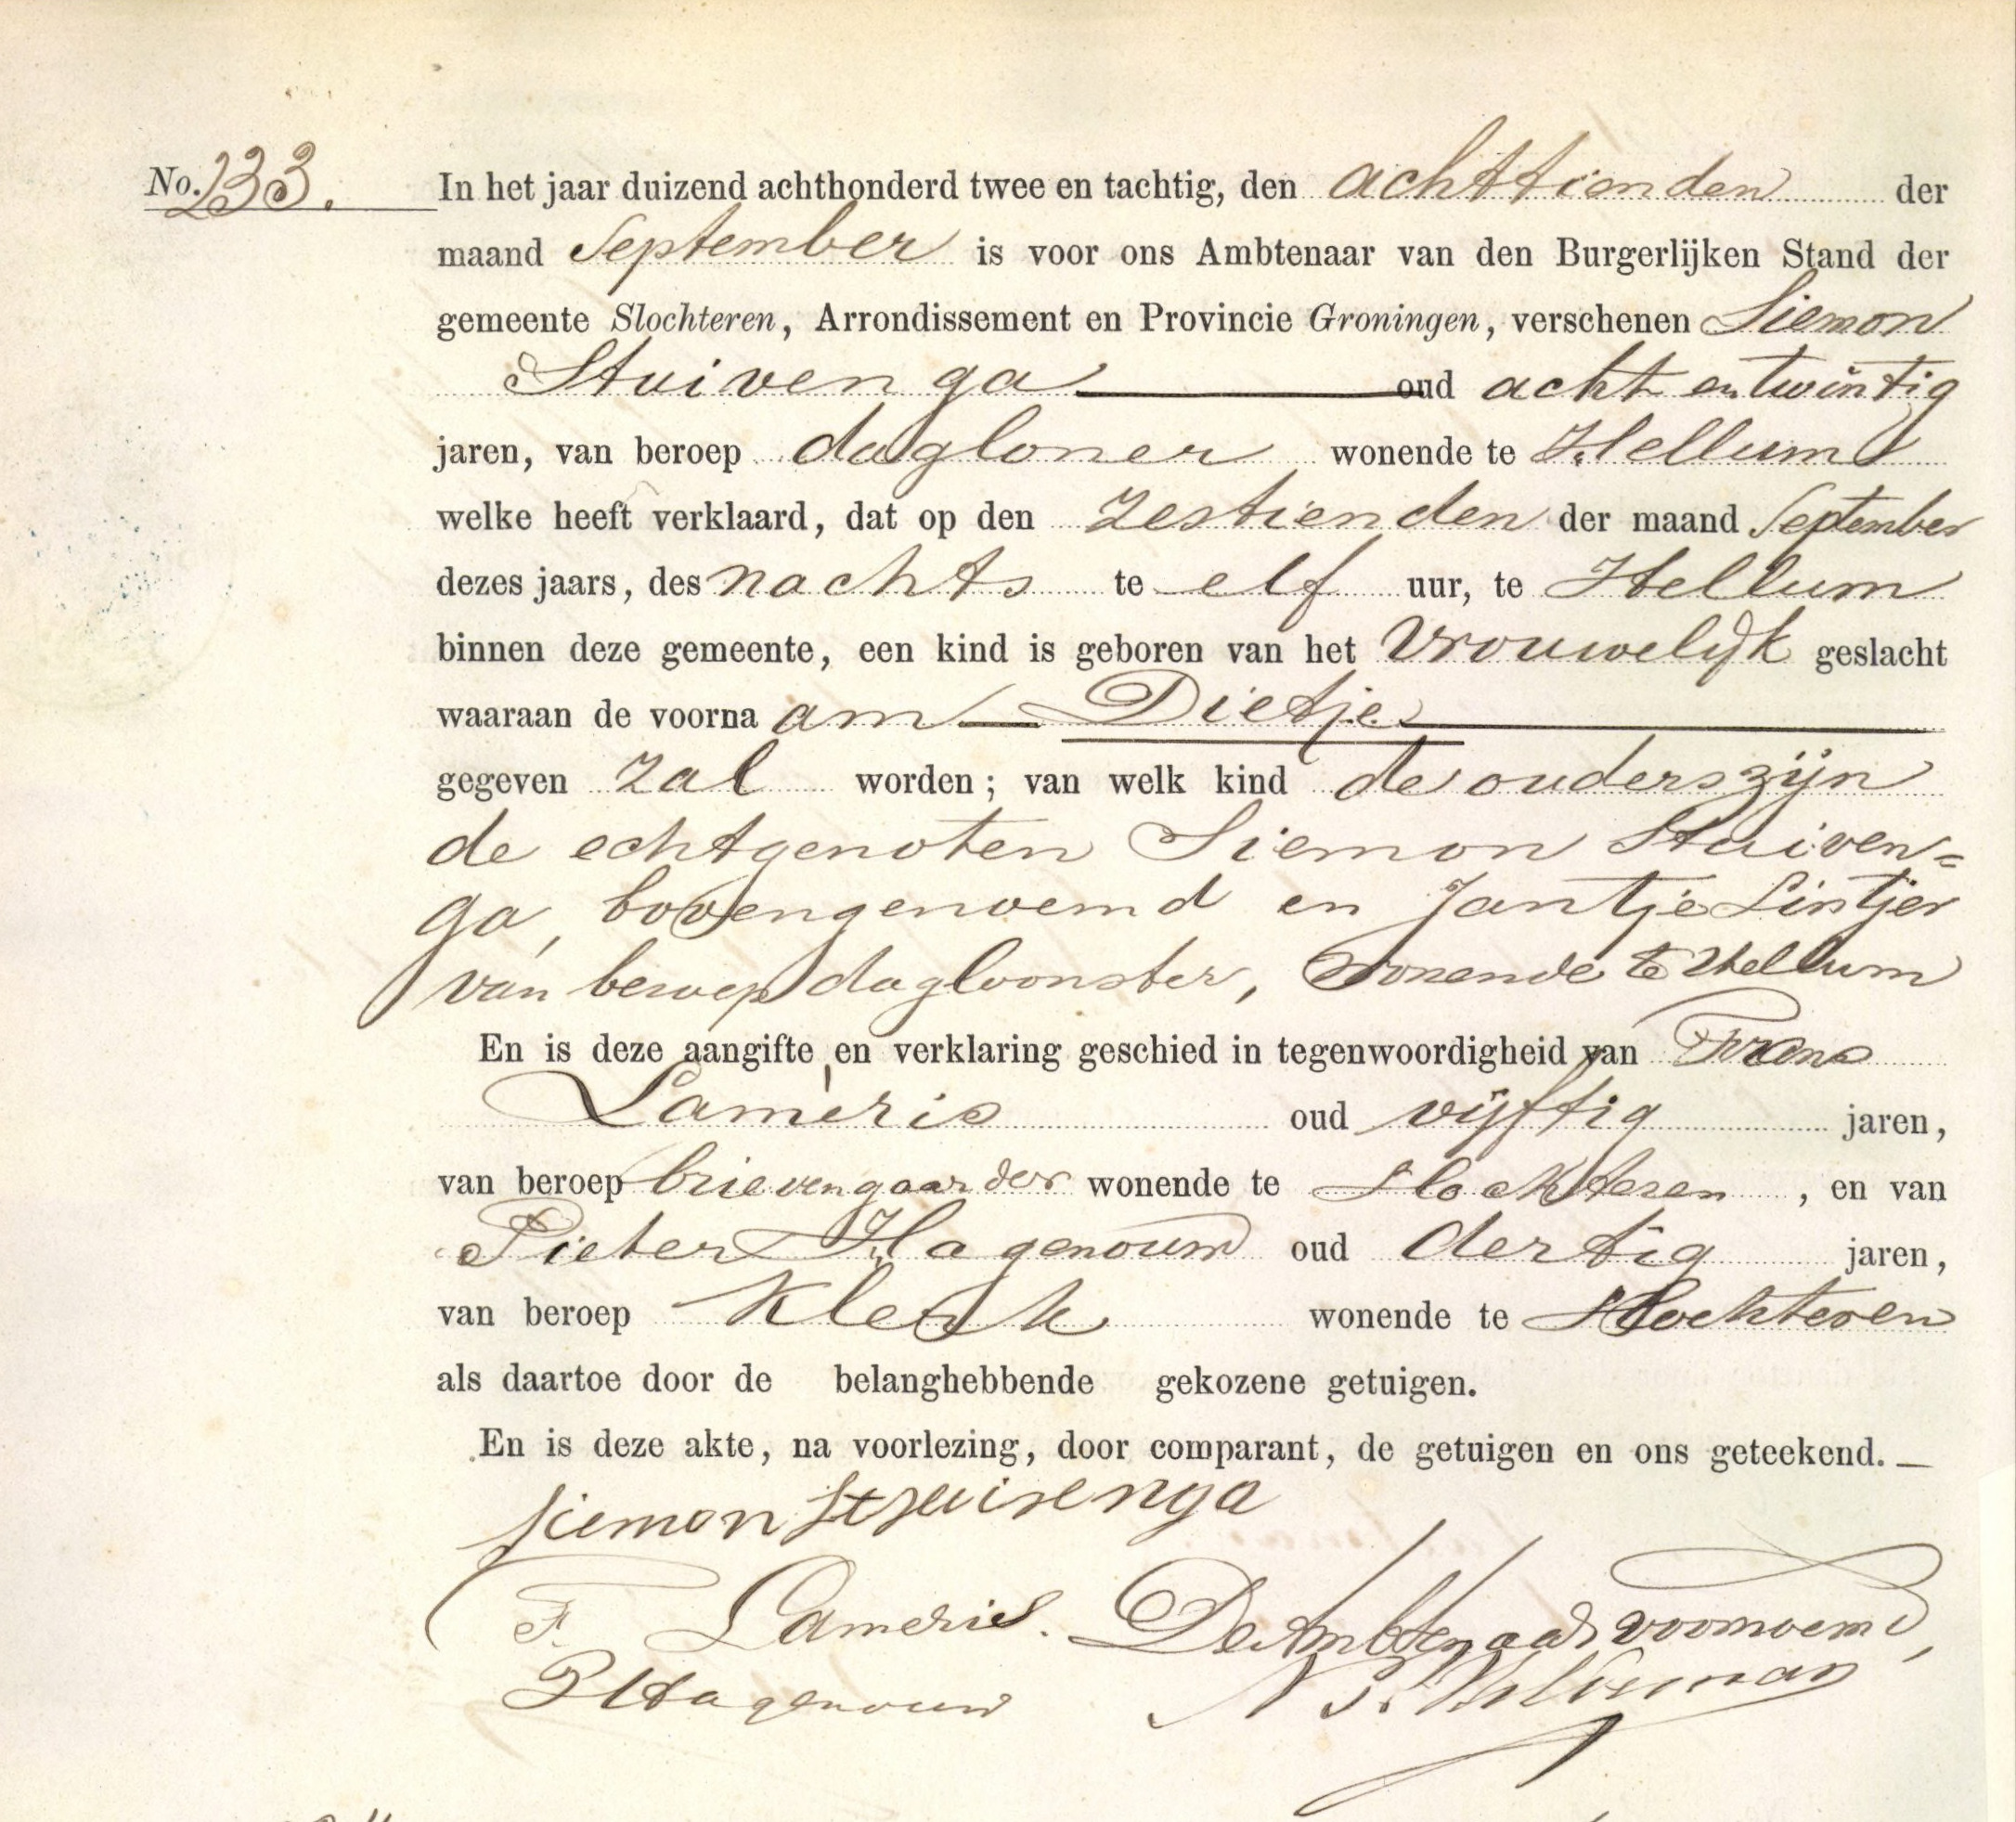 No. 233.
In het jaar duizend achthonderd twee en tachtig, den achttienden der
maand September is voor ons Ambtenaar van den Burgerlijken Stand der
gemeente Slochteren, Arrondissement en Provincie Groningen, verschenen Siemon
Stuivenga oud acht en twintig
jaren, van beroep dagloner wonende te Hellum
welke heeft verklaard, dat op den zestienden der maand September
dezes jaars, des nachts te elf uur, te Hellum
binnen deze gemeente, een kind is geboren van het Vrouwelijk geslacht
waaraan de voorna am Dietje
gegeven zal worden; van welk kind de ouders zijn
de echtgenoten Siemon Stuiven=
ga, bovengenoemd en Jantje Lintjer
van beroep dagloonster, wonende te Hellum
En is deze aangifte en verklaring geschied in tegenwoordigheid van Frans
Lameris oud vijftig jaren,
van beroep brievengaarder wonende te Slochteren, en van
Pieter Hagenouw oud dertig jaren,
van beroep Klerk wonende te Slochteren
als daartoe door de belanghebbende gekozene getuigen.
En is deze akte, na voorlezing, door comparant, de getuigen en ons geteekend. —
siemon stuivenga
F. Lameris. De Ambtenaar voornoemd,
P Hagenouw